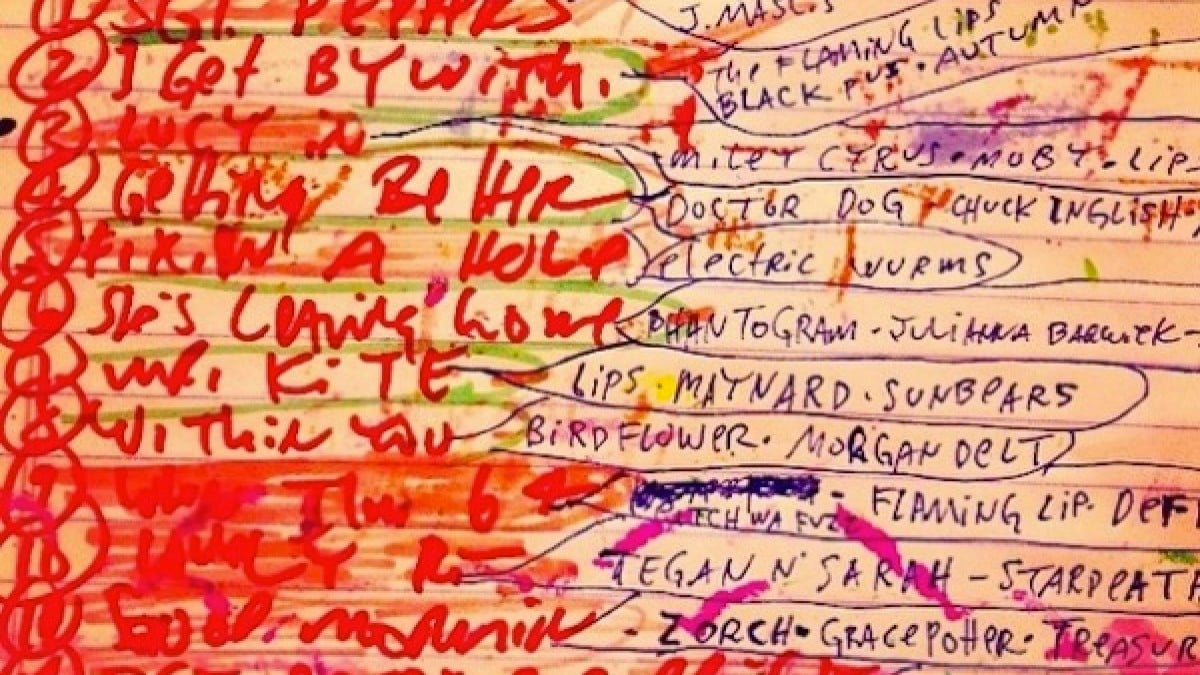 ① SGT PEPPERS J. MASCIS
② I GET BY WITH. THE FLAMING LIPS
BLACK PUS · AUTUMN
③ LUCY MILEY CYRUS · MOBY · LIPS
④ Getting BETTER DOCTOR DOG CHUCK INGLISH
⑤ FIX.IN A HOLE electric wurms
⑥ She's leaving home PHANTOGRAM - JULIANNA BARWICK -
MR. KITE LIPS · MAYNARD · SUNBEARS
⑧ Within You BIRDFLOWER · MORGAN DELT
⑨ 64 · FLAMING LIP · DEF
TCHWA FUZ
⑩ LOVELY R TEGAN N' SARAH - STARDEATH
⑪ Good morning · ZORCH · GRACE POTTER · TREASUR